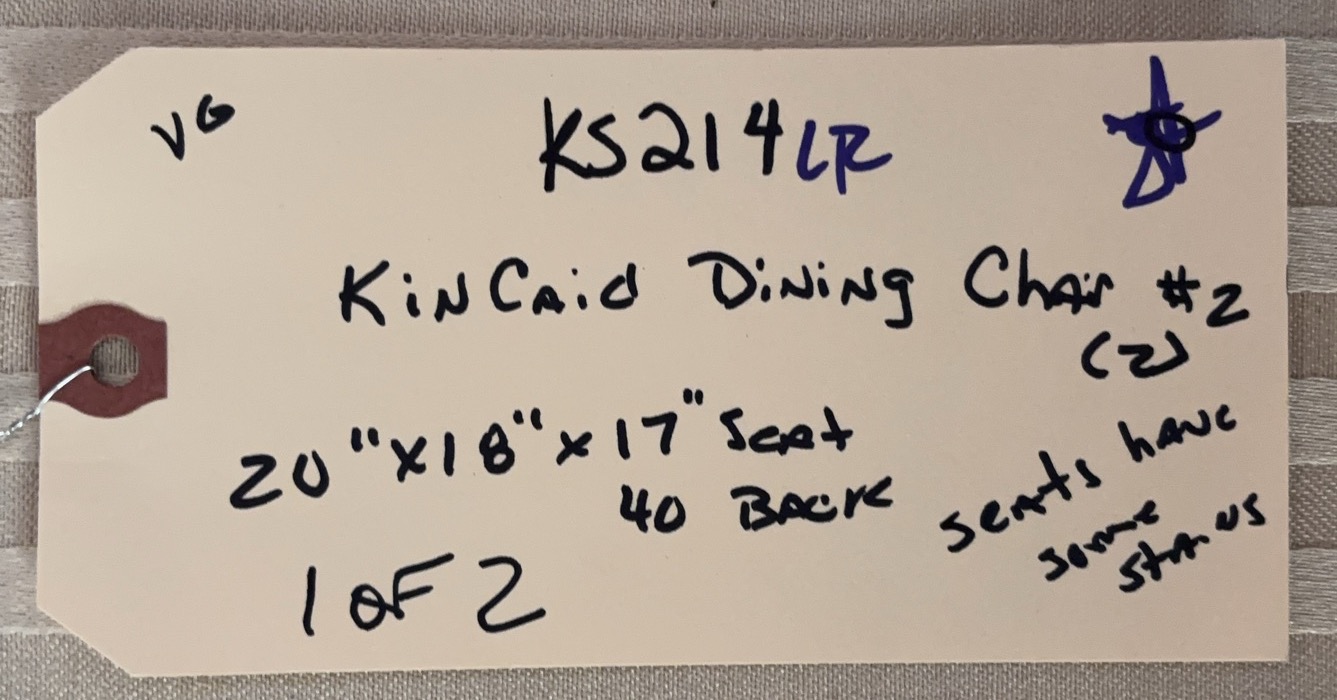 VG
KS214 LR
KinCaid Dining Chair #2
(2)
20"x18"x17" Seat
40 BACK
seats have
some
stains
1 of 2